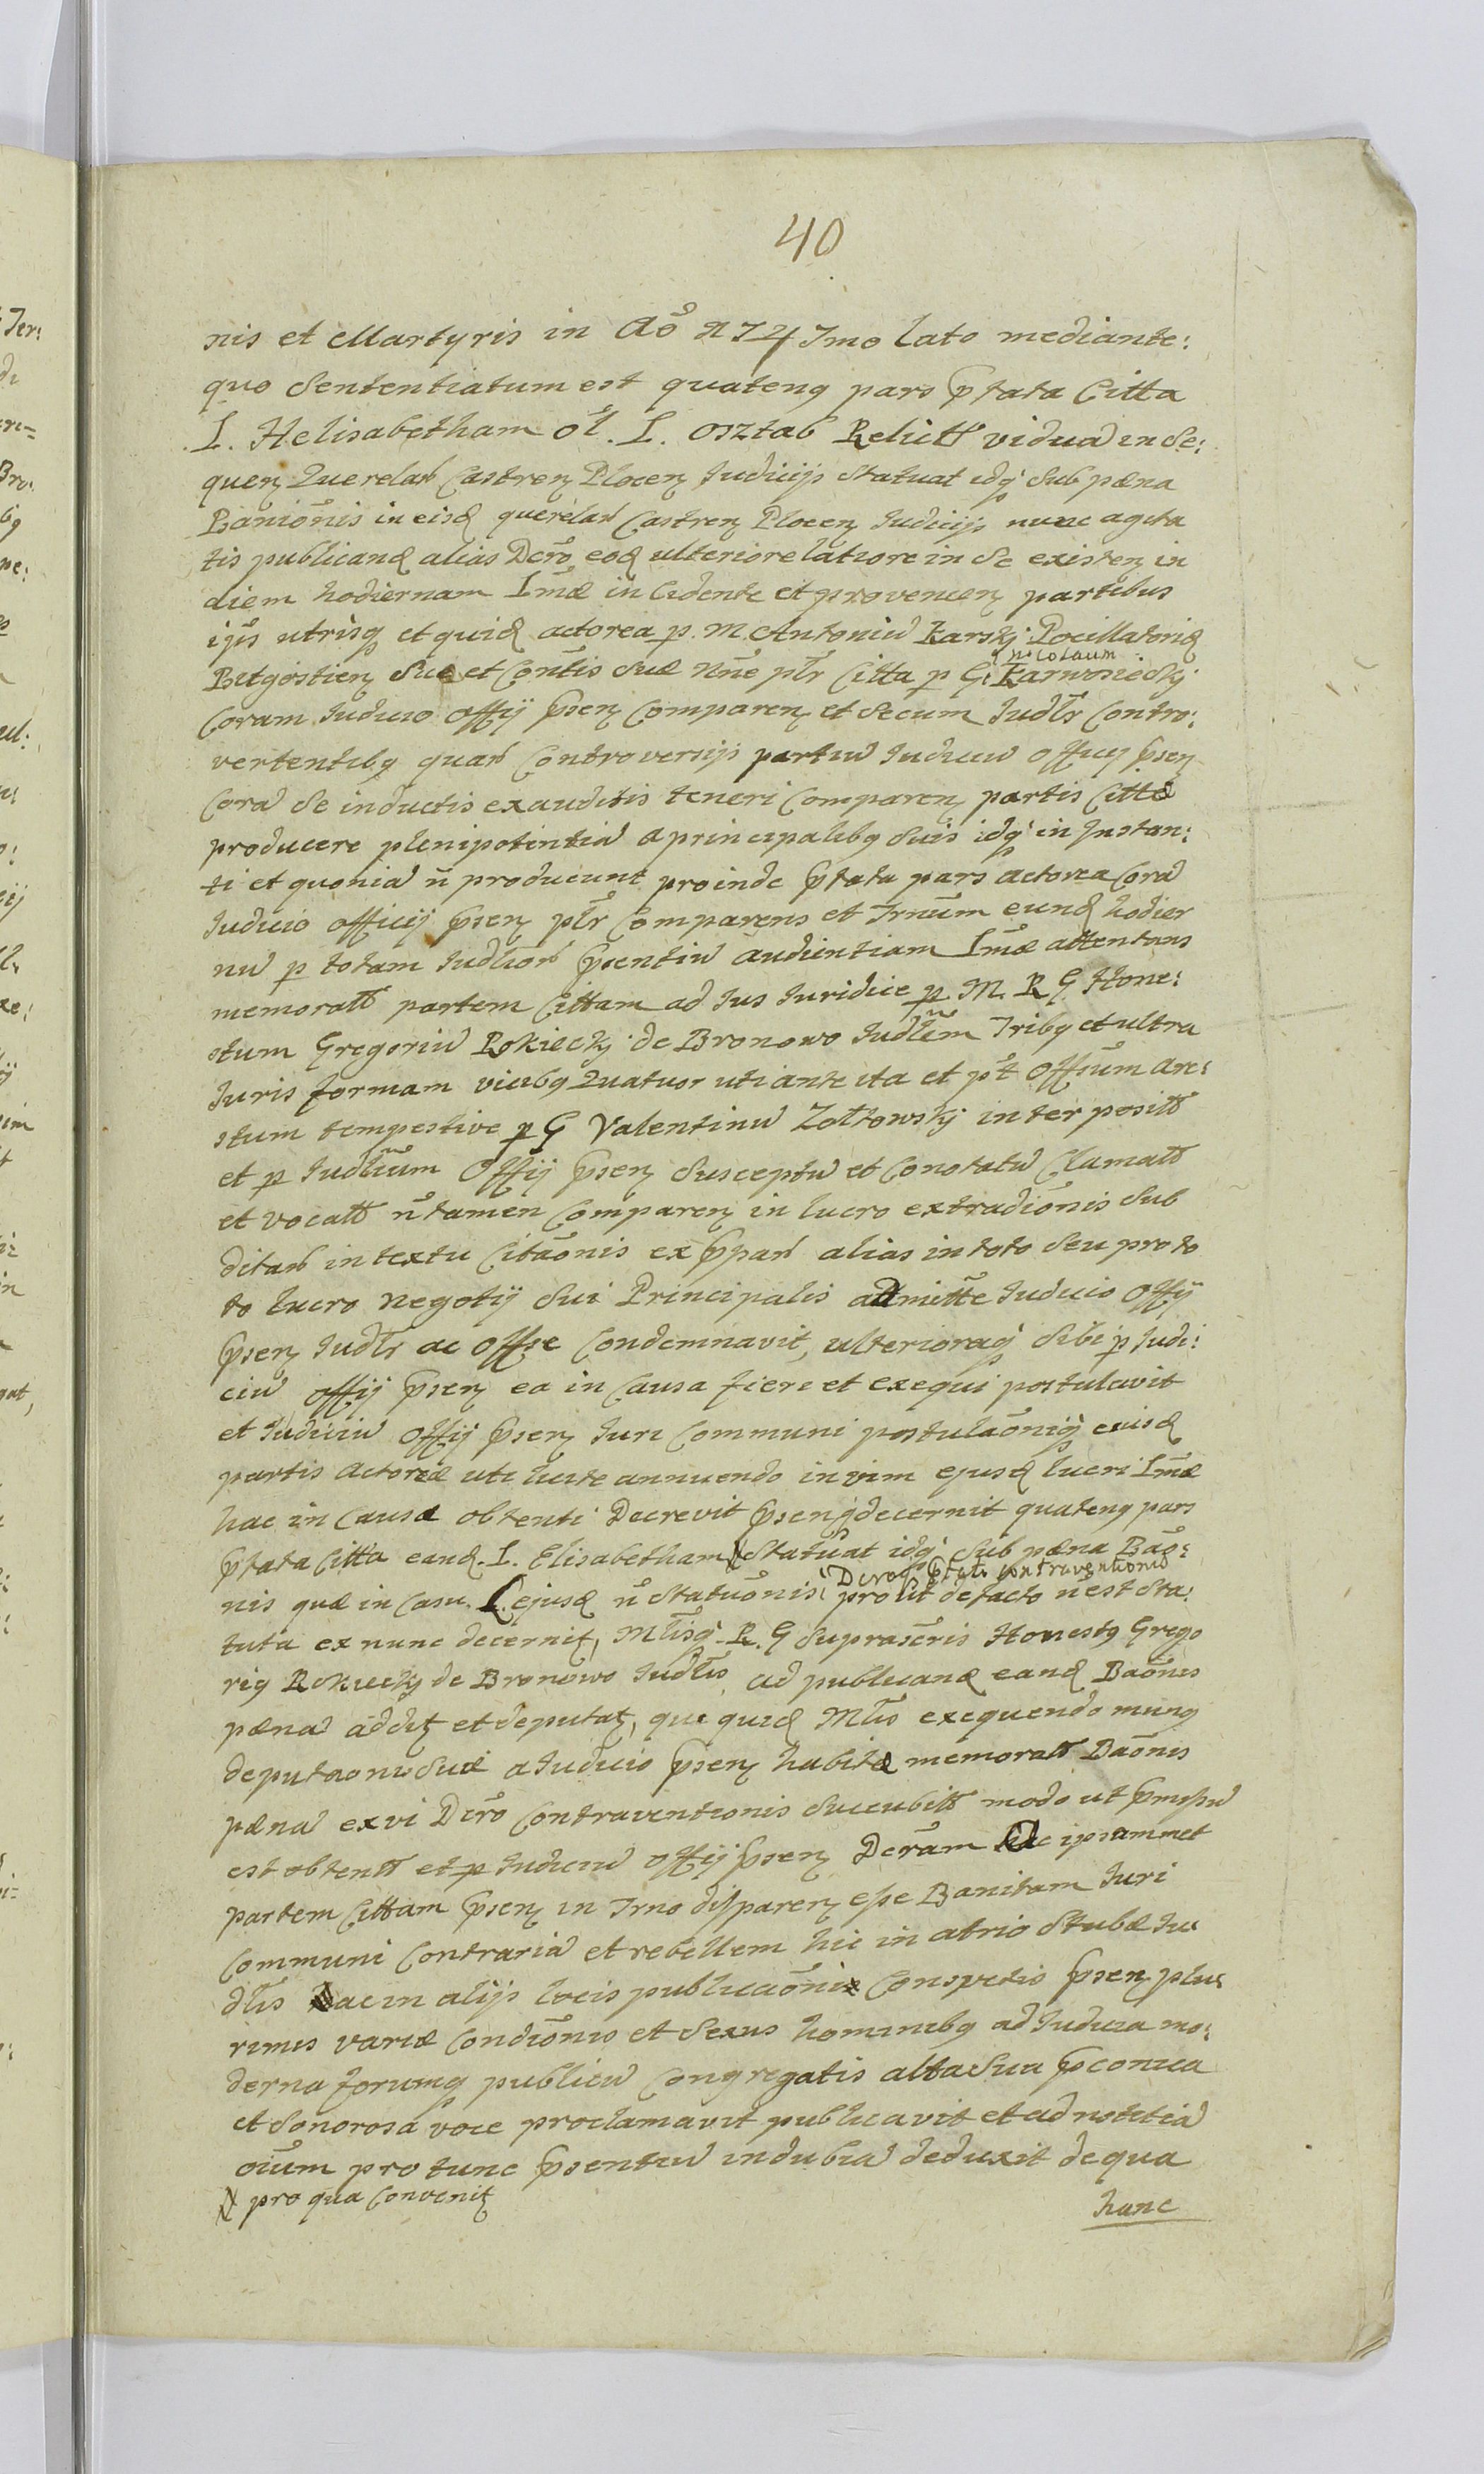 40
nis et Martyris in Aõ 1747mo lato mediante:
quo Sententiatum est quateng pars ptata Citta
L. Helisabetham ol. L. osztab Relictt viduã in Se:
quen Querelar Castren Plocen Judicijs statuat idq sub pæna
Baniõnis in eisd querelar Castren Plocen Judicijs nunc agita
tis publicand alias Dcro eod ulteriore latiore in se existen in
diem hodiernam Imæ incidente et provenien partibus
ijs utrisq et quid actorea p. M. Antoniũ Karskj Pocillatorid
Bitgostien
nicolaum
Sue et Contis suæ nne plr Citta p G. Karnosiedskj
Coram Judicio offij psen Comparen et secum Judlr Contro:
vertentibq quar Controversijs partiũ Judiciũ officij psen
Corã Se inductis exauditis teneri Comparen partis Cittæ
producere plenipotentiã a principalibq suis idq in Instan:
ti et quoniã ñ producunt proinde ptata pars actorea Corã
Judicio officij psen plr Comparens et Trnum eund hodier
nũ p totam Judliar psentiũ audientiam Imæ attentans
memoratt partem Cittam ad Jus Juridice p. M. R G Hone:
stum Gregoriũ Rokieckj de Bronowo Judlem Tribq et ultra
Juris formam vicibq Quatuor uti ante ita et pt Offium are:
stum tempestive p G Valentinũ Zołtowskj interpositt
et p Judlium Offij psen Susceptũ et Conotatũ Clamatt
et vocatt ñ tamen Comparen in lucro extradiõnis Sub
ditar in textu Citaõnis expspar alias in toto Seu pro to
to lucro negotij Sui Principalis admitte Judicio Offij
psen Judlr ac offse Condemnavit, ulterioraq Sibi p Judi:
ciũ offij psen ea in Causa fieri et exequi postulavit
et Judiciũ offij psen Juri Communi postulaõniq eiusd
partis Actoreæ uti iuste annuendo in vim ejusd lucri Imæ
hac in Causa obtenti Decrevit psenq decernit quateng pars
ptata Citta eand. L. Elisabetham Statuat idq Sub pæna Bao:
Dcroq ptati contraventionis
nis quæ in Casu ejusd ñ Statuõnis prout defacto n est Sta:
tuta ex nunc decernit, Mtisq R. G Suprascris Honestq Grego
riq Rokieckj de Bronowo Judlis ad publicand eand Baõnis
pænã addit et deputat, qui quid Mlis exequendo munq
deputaõnis Suæ a Judicio psen habitæ memoratt Baõnis
pænã ex vi Dcro Contraventionis Succubitt modo ut pmissũ
est obtentt et p Judiciũ offij psen Decram ac ipsammet
partem Cittam psen in Trno disparen esse Banitam Juri
Communi Contrariã et rebellem hic in atrio Stubæ Ju
dlis ac in alijs locis publicaõni Conspectis psen plu
rimis variæ Condiõnis et Sexus hominibq ad Judicia mo:
derna forumq publicũ Congregatis alta Sua pconica
et Sonorosa voce proclamavit publicavit et ad notitiã
oium pro tunc psentiũ indubiã deduxit de qua
pro qua Convenit
hanc